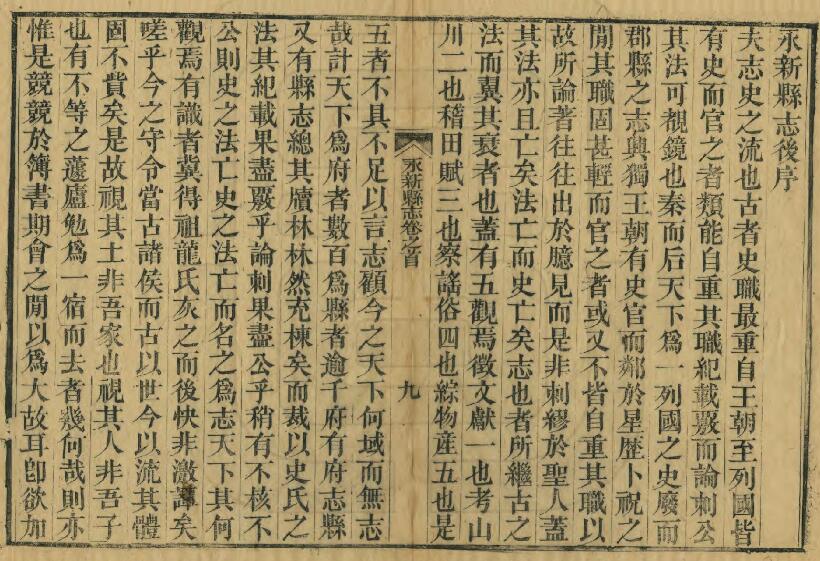 永新縣志後序
夫志史之流也古者史職最重自王朝至列國皆
有史而官之者類能自重其職紀載覈而論刺公
其法可覩鏡也秦而后天下爲一列國之史廢而
郡縣之志興獨王朝有史官而鄰於星歷卜祝之
閒其職固甚輕而官之者或又不皆自重其職以
故所論著往往出於臆見而是非刺繆於聖人蓋
其法亦且亡矣法亡而史亡矣志也者所繼古之
法而翼其衰者也蓋有五觀焉徵文獻一也考山
川二也稽田賦三也察謠俗四也綜物產五也是
永新縣志卷之首
九
五者不具不足以言志顧今之天下何域而無志
哉計天下爲府者數百爲縣者逾千府有府志縣
又有縣志總其牘林林然充棟矣而裁以史氏之
法其紀載果盡覈乎論刺果盡公乎稍有不核不
公則史之法亡史之法亡而名之爲志天下其何
觀焉有識者冀得祖龍氏灰之而後快非激譚矣
嗟乎今之守令當古諸侯而古以世今以流其體
固不貲矣是故視其土非吾家也視其人非吾子
也有不等之蘧廬勉爲一宿而去者幾何哉則亦
惟是兢兢於簿書期會之閒以爲大故耳卽欲加